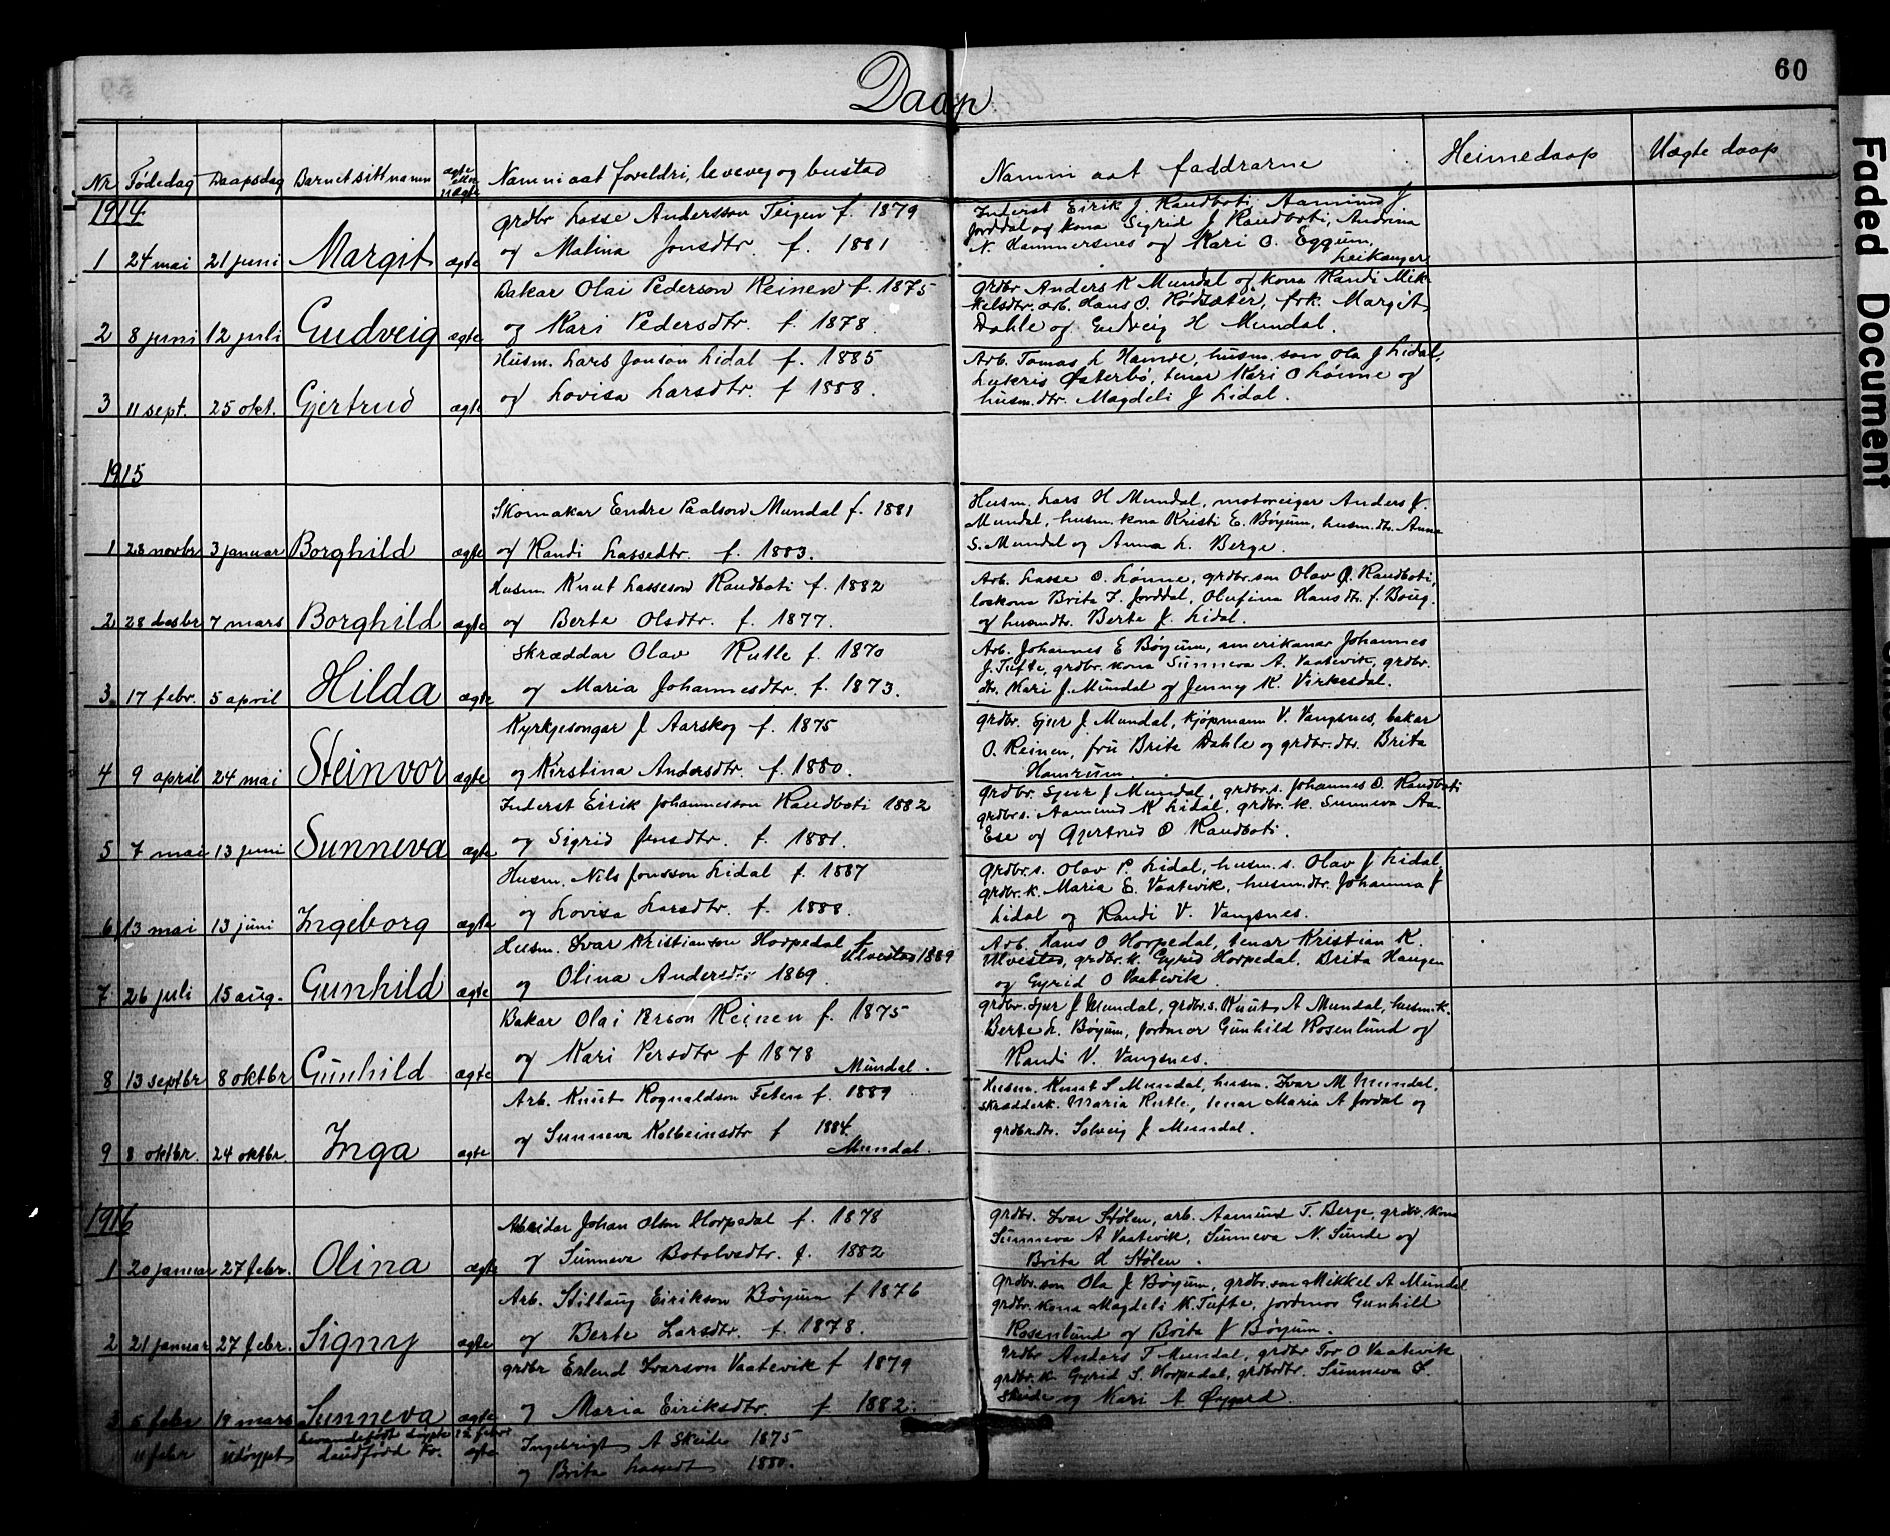 60
Daap
Nr. Fødedag Daapsdag Barnet sitt namn ægte eller uægte Namn aat foreldri, levevej og bustad Namn aat faddrarne Heimedaap Uægte daap
1914
grdbr Lasse Andersson Teigen f. 1879
1 24 mai 21 juni Margit ægte og Malina Jonsdtr. f. 1881
Inderst Eirik J. Raudboti, Aamund J
Jorddal og kona Sigrid J Raudboti, Andrina
N. Hammersnes og Kari O. Eggum,
Leikanger
Bakar Olai Pederson Reinen f. 1875
2 8 juni 12 juli Gudveig ægte og Kari Pedersdtr. f. 1878.
grdbr Anders K Mundal og kona Randi Mik-
kelsdtr. arb. Hans O. Rødsæter, frk. Margit
Dahle og Gudveig H Mundal.
Husm. Lars Jonson Lidal f. 1885
3 11 sept. 25 okt. Gjertrud ægte og Lovisa Larsdtr. f 1888.
Arb. Tomas L Hamre, husm. son Ola J Lidal,
Lukris Østerbø, tenar Kari O Lønne og
husm.dtr. Magdeli J Lidal.
1915
Skomakar Endre Paalson Mundal f. 1881
1 28 novbr 3 januar Borghild ægte og Randi Lassedtr. f. 1883.
Husm. Lars H Mundal, motoreigar Anders J.
Mundal, husm. kona Kristi E. Bøyum, husm.dtr. Anna
S. Mundal og Anna L. Berge.
Husm. Knut Lasseson Raudboti f. 1882
2 28 desbr 7 mars Borghild ægte og Berte Olsdtr. f. 1877.
Arb. Lasse O. Lønne, grdbr.son Olav O. Raudboti,
Brita I. Jorddal, Olufina Hansdtr. f.
og husmdtr. Berta J. Lidal.
Skræddar Olav Rutle f. 1870
3. 17 febr. 5 april Hilda ægte og Maria Johannesdtr. f. 1873.
Arb. Johannes E Bøyum, amerikanar Johannes
J. Tufte, grdbr. kona Sunneva A. Vaatevik, grdbr.
dtr. Kari J. Mundal og Jenny K. Virkesdal.
Kyrkjesongar J Aarskog f. 1875
4 9 april 24 mai Steinvor ægte og Kirstina Andersdtr. f. 1880.
grdbr. Sjur J. Mundal, Kjøpmann V. Vangsnes, bakar
O. Reinen, fru Brite Dahle og grdbr.dtr. Brita
Hamrum.
Inderst Eirik Johannesson Raudboti 1882
5 7 mai 13 juni Sunneva ægte og Sigrid Jensdtr. f. 1881.
grdbr. Sjur J Mundal, grdbr.s. Johannes O. Raudboti
grdbrs. Aamund K Lidal, grdbr. k. Sunneva Aa.
Ese og Gjertrud O Raudboti.
Husm. Nils Jonsson Lidal f. 1887
6 13 mai 13 juni Ingeborg ægte og Lovisa Larsdtr. f. 1888.
grdbr.s. Olav P. Lidal, husm. s. Olav J Lidal,
grdbr.k. Maria E. Vaatevik, husm.dtr. Johanna J
Lidal og Randi V. Vangsnes.
Husm. Ivar Kristianson Horpedal f
Ulvestad 1889
7. 26 juli 15 aug. Gunhild ægte og Olina Andersdtr 1869.
Arb. Hans O Horpedal, tenar Kristian K.
Ulvestad, grdbr.k. Gyrid Horpedal. Brita Haugen
og Gyrid O Vaatevik.
Bakar Olai Person Reinen f. 1875
8 13 septbr 8 oktbr Gunhild ægte og Kari Persdtr f 1878
Mundal.
grdbr. Sjur J Mundal, grdbr.s. Knut A Mundal, husm.k.
Berte L. Bøyum, jordmor Gunhild Rosenlund og
Randi V. Vangsnes.
Arb. Knut Rognaldson Feten f. 1889
9 8 oktbr. 24 oktbr. Inga ægte og Sunneva Kolbeinsdtr f 1884.
Mundal.
Husm. Knut S Mundal, husm. Ivar M Mundal,
skrædderk. Maria Rutle, tenar Maria A Jordal og
grdbrdtr. Solveig J. Mundal.
1916
Arbeidar Johan Olson Horpedal f. 1878
1 20 januar 27 febr. Olina ægte og Sunneva Botolvsdtr. f. 1882
grdbr. Ivar Stølen, arb. Aamund T. Berge, grdbr. kona
Sunneva A Vaatevik, Sunneva N. Sunde og
Brita H Stølen.
Arb. Stillaug Eirikson Bøyum f 1876
2 21 januar 27 febr. Signy ægte og Berte Larsdtr. f. 1878.
grdbr. son Ola J Bøyum, grdbr. son Mikkel A Mundal
grdbr. kona Magdeli K. Tufte, jordmor Gunhill
Rosenlund og Brita J Bøyum.
grdbr Erlend Ivarson Vaatevik f 1879
3 5 febr 19 mars Sunneva ægte og Maria Eiriksdtr. f 1882.
Grdbr Anders T Mundal, grdbr Tor O Vaatevik
grdbr.k. Gyrid S. Horpedal, grdbrdtr. Sunneva I.
Skeide og Kari A Øygard.
11 febr udøypt daudfødd kv. ægte Ingebrigt A Skeide 1875
og Brita Lassedt 1880.
Faded Document